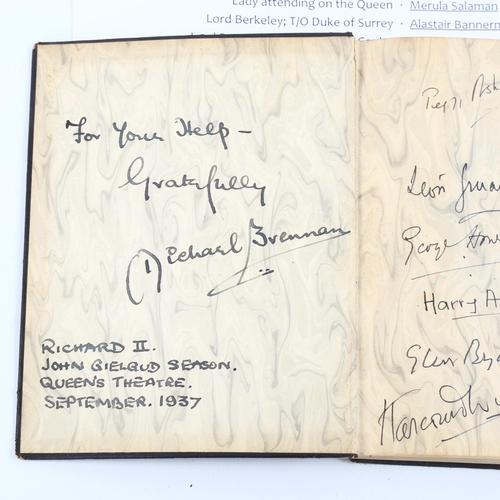 Lady attending on the Queen · Merula Salaman
Lord Berkeley; T/O Duke of Surrey · Alastair Bannerm
For Your Help –
Gratefully
Michael Brennan
RICHARD II.
JOHN GIELGUD SEASON.
QUEEN'S THEATRE.
SEPTEMBER. 1937
Peggy Ash
Leon
George Howe
Harry A
Glen Bya
Harcourt